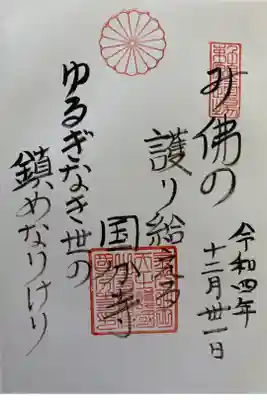 み佛の
令和四年
十二月卅一日
護り給
国分寺
ゆるぎなき世の
鎮めなりけり